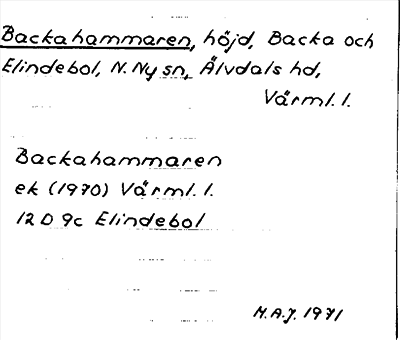 Backahammaren, höjd, Backa och
Elindebol, N. Ny sn, Älvdals hd,
Värml. l.
Backahammaren
ek (1970) Värml. l.
12 D 9c Elindebol
M.A.J. 1971